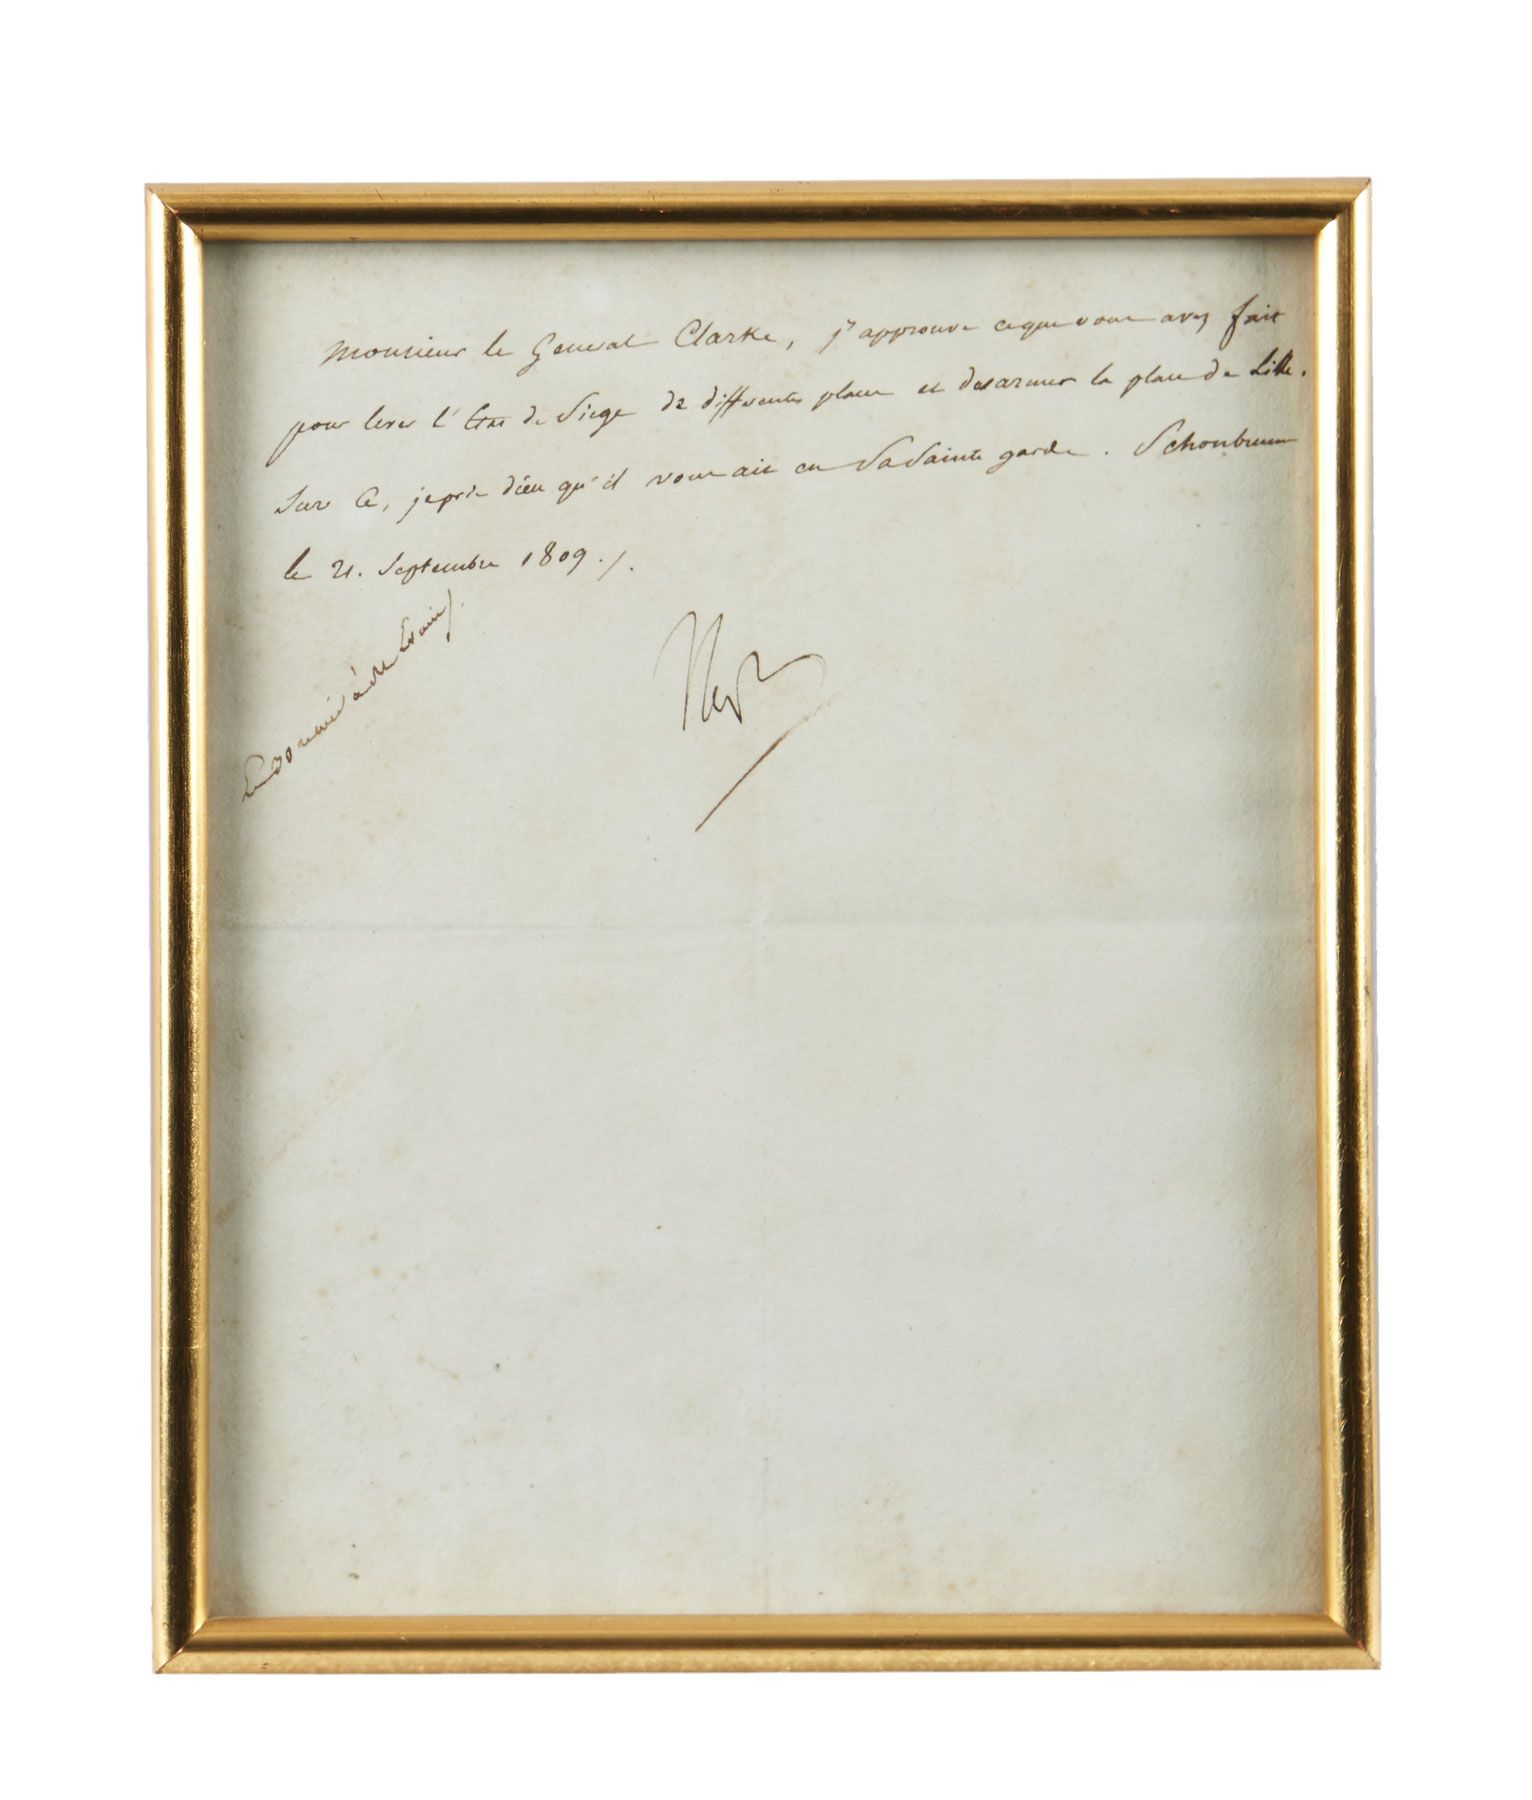 Monsieur le General Clarke, j'approuve ce que vous avez fait
pour lever l'Etat de Siege de differentes places et desarmer la place de Lille.
Sur ce, je prie dieu qu'il vous ait en Sa Sainte garde. Schonbrunn
le 21. Septembre 1809./.
Nap